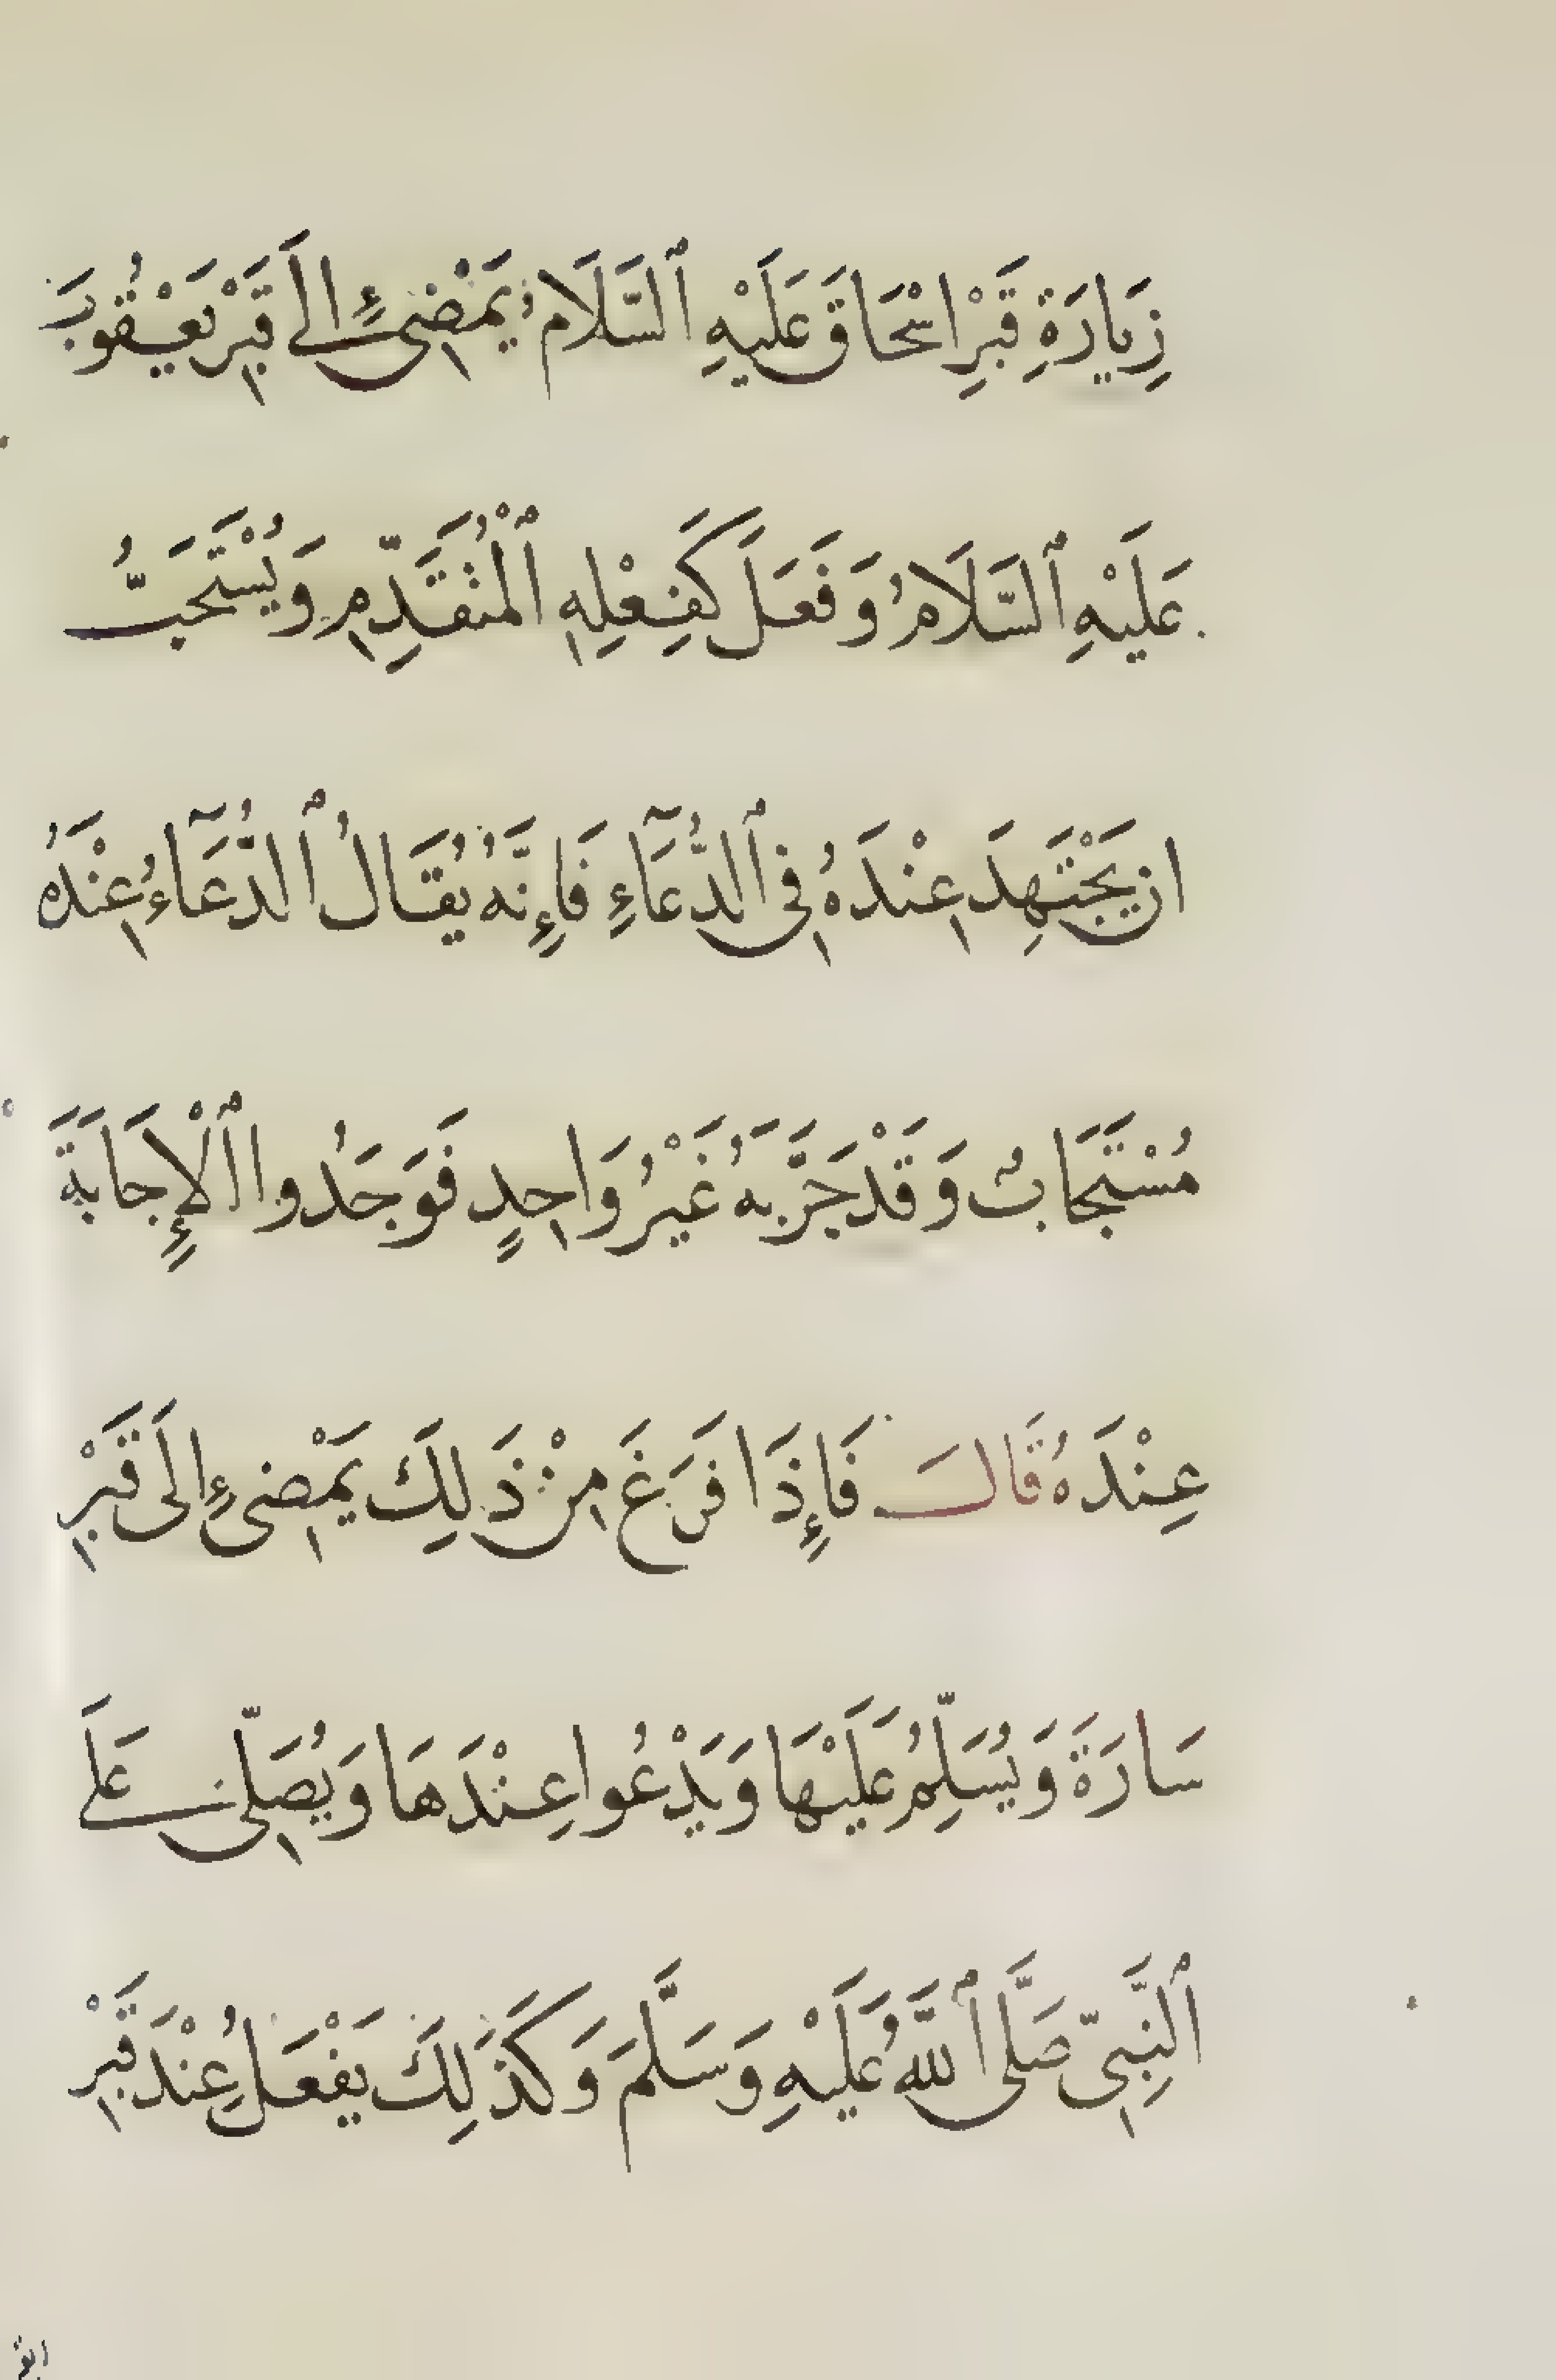 زِيَارَةِ قَبْرِ اسْحَاقَ عَلَيْهِ ٱلسَّلَامُ يَمْضِىءُ الَى قَبْرِ يَعْقُوبَ
عَلَيْهِ ٱلسَّلَامُ وَفَعَلَ كَفِعْلِهِ ٱلْمُتَقَدِّمِ وَيُسْتَحَبُّ
ان يَجْتَهِدَ عِنْدَهُ فِى ٱلدُّعَآءِ فَإِنَّهُ يُقَالُ ٱلدُّعَآءُ عِنْدَهُ
مُسْتَجَابٌ وَقَدْ جَرَّبَهُ غَيْرُ وَاحِدٍ فَوَجَدُوا ٱلْإِجَابَةَ
عِنْدَهُ قَالَ فَإِذَا فَرَغَ مِنْ ذَلِكَ يَمْضِىءُ إِلَى قَبْرِ
سَارَةَ وَيُسَلِّمُ عَلَيْهَا وَيَدْعُوا عِنْدَهَا وَيُصَلِّى عَلَى
ٱلنَّبِىِّ صَلَّى ٱللَّهُ عَلَيْهِ وَسَلَّمَ وَكَذَلِكَ يَفْعَلُ عِنْدَ قَبْرِ